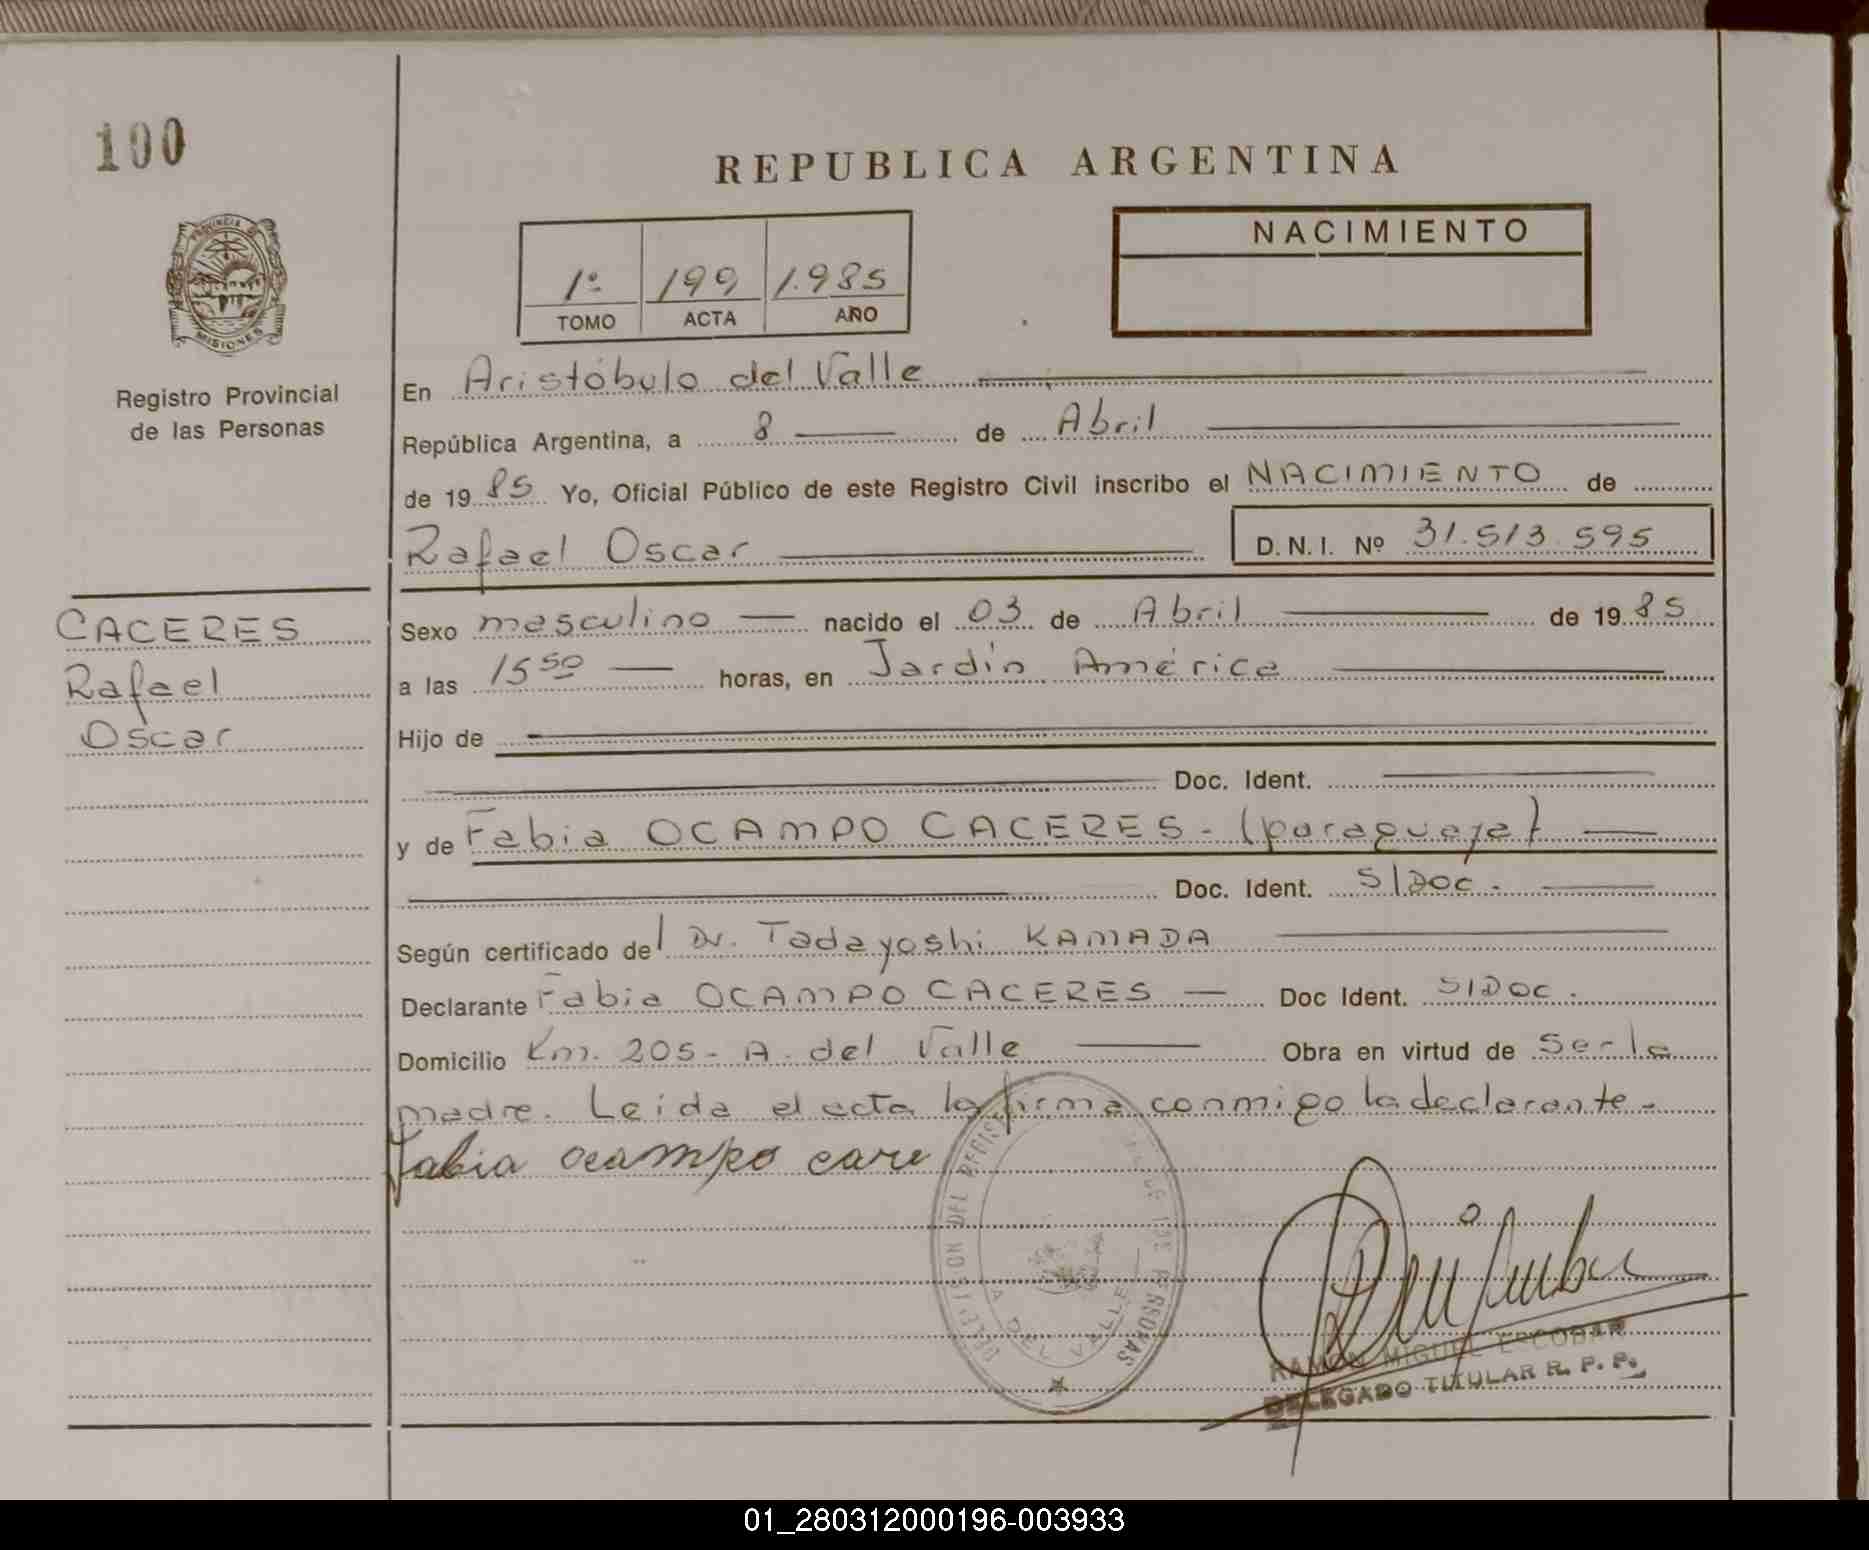 100
REPUBLICA ARGENTINA
PROVINCIA DE
MISIONES
Registro Provincial
de las Personas
1º 199 1.985
TOMO ACTA AÑO
NACIMIENTO
En Aristóbulo del Valle
República Argentina, a 8 de Abril
de 1985 Yo, Oficial Público de este Registro Civil inscribo el NACIMIENTO de
Rafael Oscar D.N.I. Nº 31.513.595
CACERES
Rafael
Oscar
Sexo masculino nacido el 03 de Abril de 1985
a las 15 50 horas, en Jardín América
Hijo de
Doc. Ident.
y de Fabia OCAMPO CACERES - (paraguaya)
Doc. Ident. S/Doc.
Según certificado del Dr. Tadayoshi KAMADA
Declarante Fabia OCAMPO CACERES Doc Ident. S/Doc.
Domicilio Km. 205 - A. del Valle Obra en virtud de Ser la
madre. Leida el acta la firma conmigo la declarante -
Fabia ocampo care
DEL VALLE
RAMON MIGUEL ESCOBAR
DELEGADO TITULAR R. P. P.
01_280312000196-003933